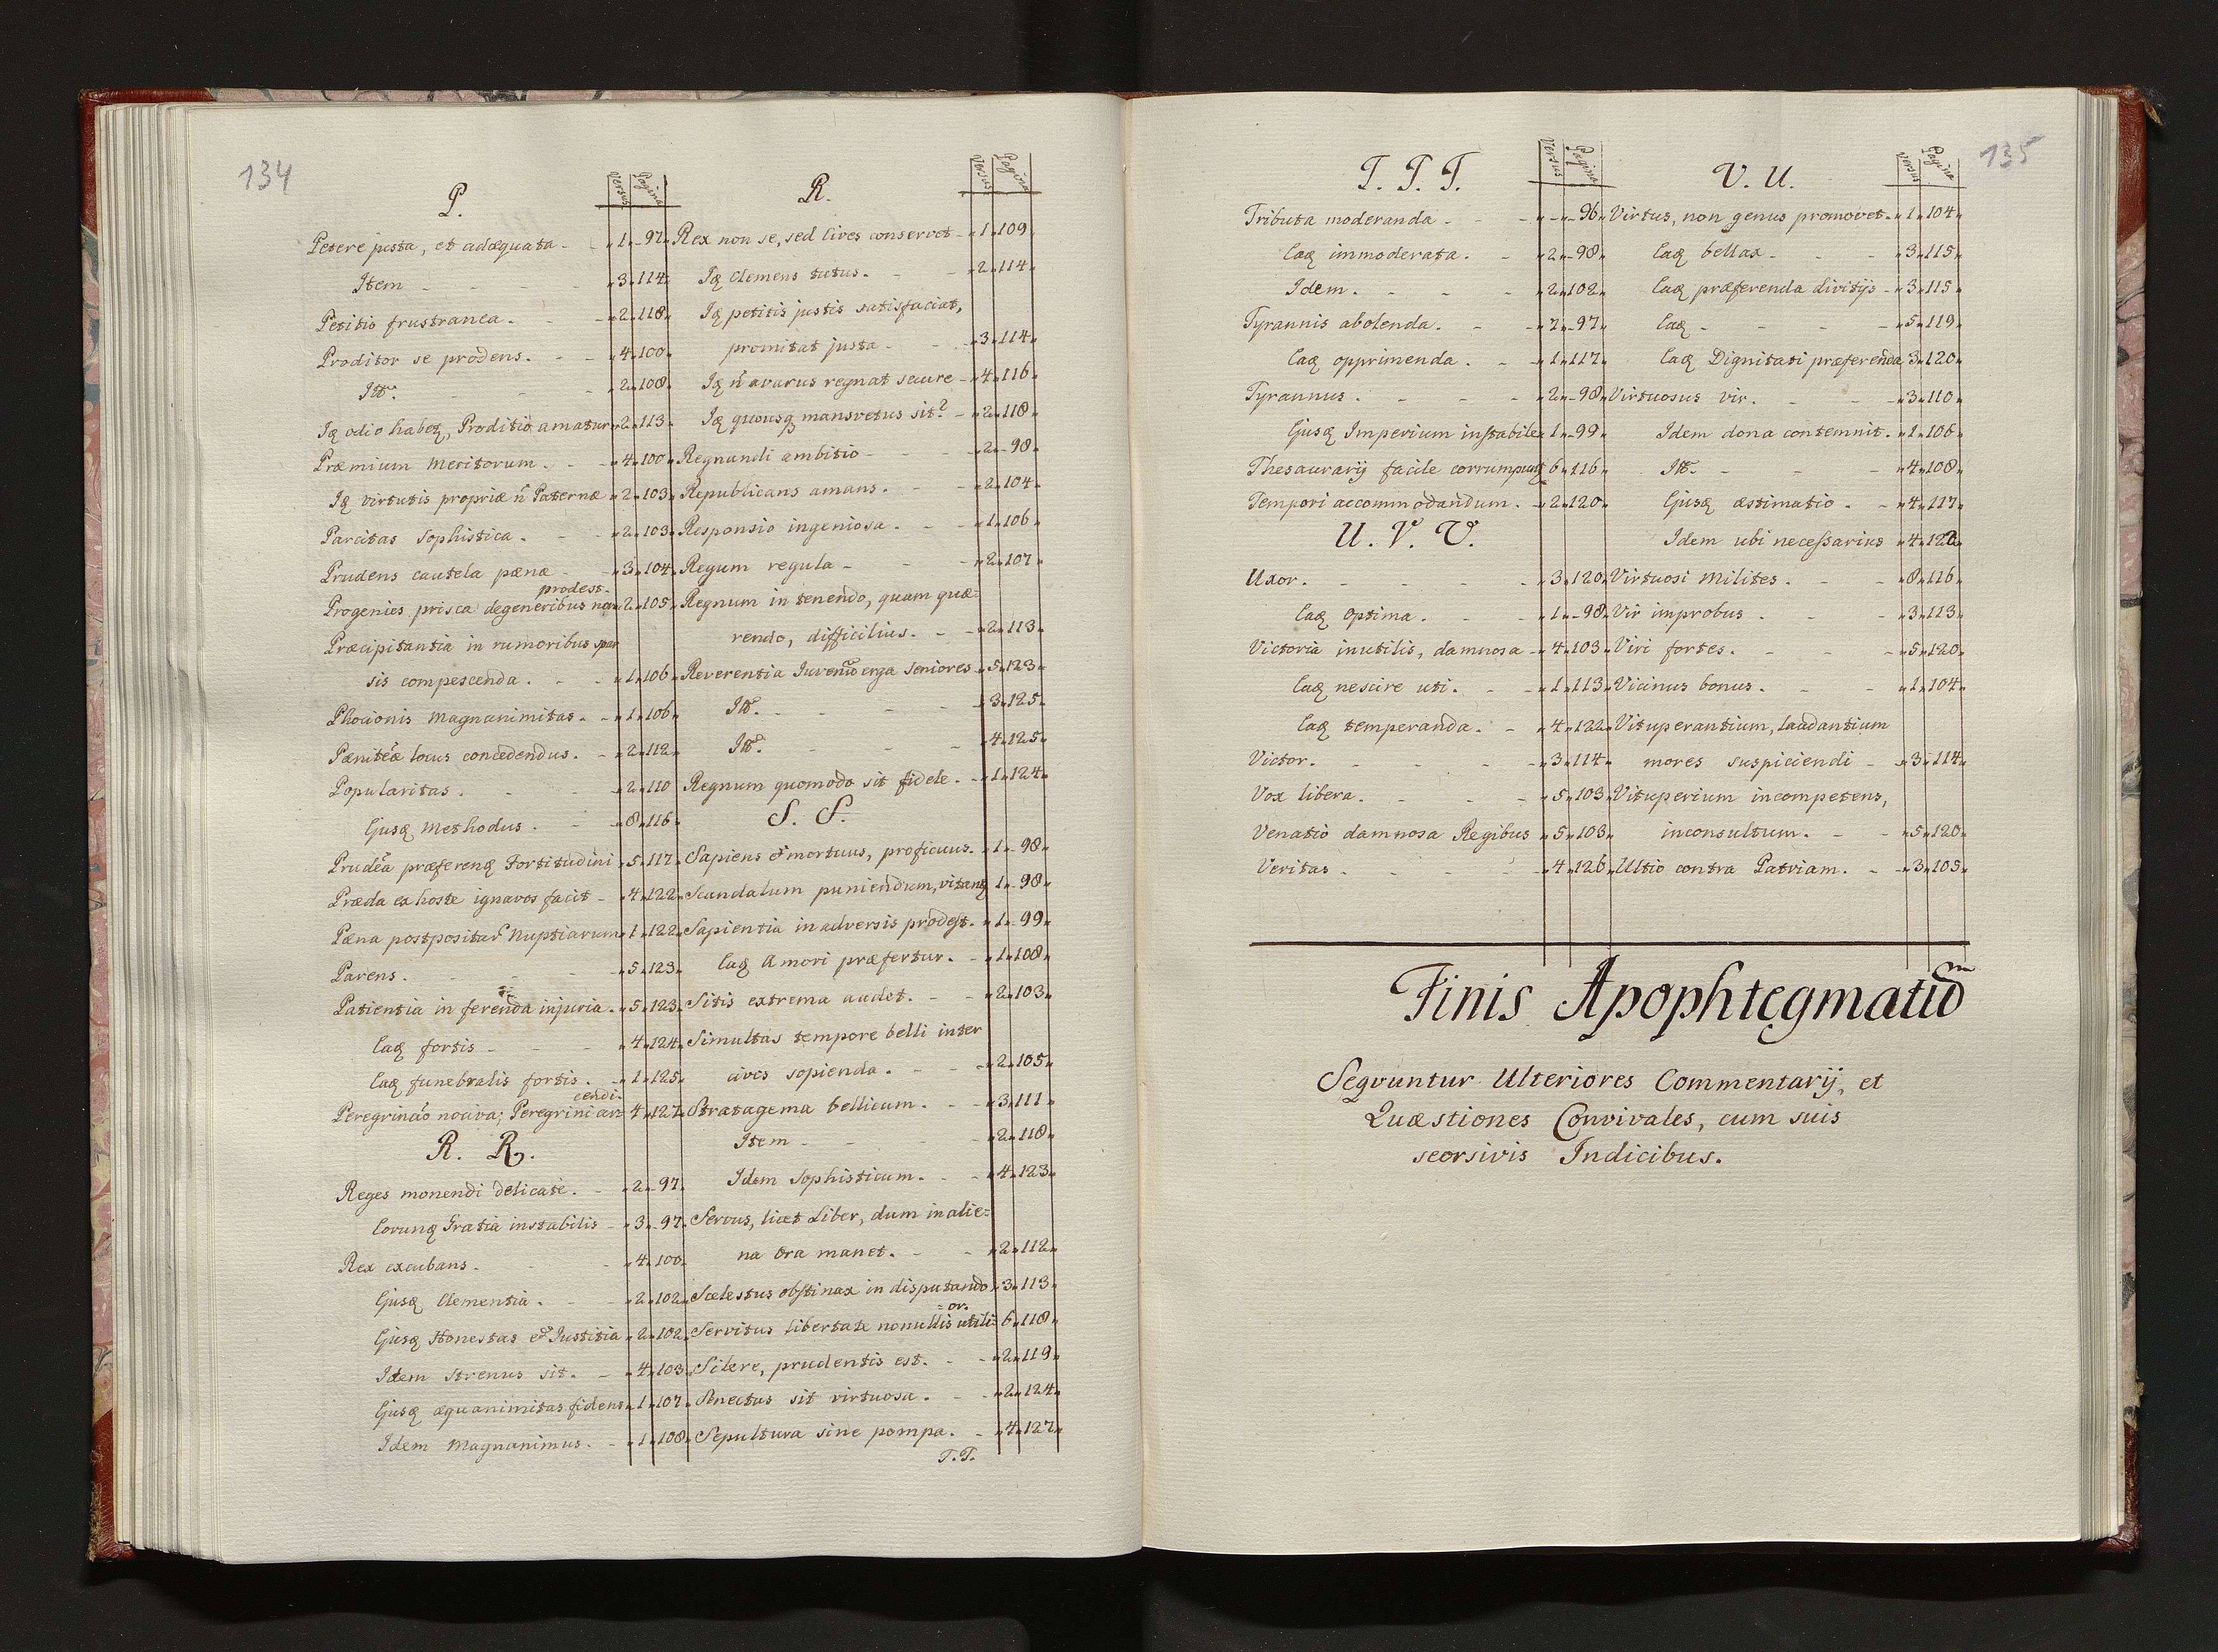 134
P.
Versus Pagina
Petere justa, et adæquata - - 1 - 97
Item - - - - - 3 114
Petitio frustranea. - - 2 118
Proditor se prodens. - - 4 100
Itē. - - 2 108
Iq odio habeꝫ, Proditio amatur 2 113
Præmium Meritorum. - - 4 100
Iq virtutis propriæ ñ Paternæ 2 103
Parcitas Sophistica. - - 2 103
Prudens cautela pænæ - 3 104
prodest.
Progenies prisca degeneribus non 2 105
Præcipitantia in rumoribus spar
sis compescenda. - - 1 106
Phocionis Magnanimitas. - 1 106
Pænitẽæ locus concedendus. - 2 112
Popularitas. - - 2 110
Ejusq Methodus. - 8 116
Prudẽa præferenq Fortitudini 5 117
Præda ex hoste ignavos facit - 4 122
Pæna postpositar Nuptiarum 1 122
Parens. - - - 5 123
Patientia in ferenda injuria. 5 123
Eaq fortis - - - 4 124
Eaq funebralis fortis. - 1 125
cendi.
Peregrinão nociva; Peregrini ar 4 127
R. R.
Reges monendi delicate. - 2 - 97
Eorunq Gratia instabilis - 3 - 97
Rex excubans. - - 4 100
Ejusq Clementia. - 2 102
Ejusq Honestas et Justitia 2 102
Idem Strenus sit. - 4 103
Ejusq æquanimitas fidens 1 107
Idem Magnanimus. - 1 108
R.
Versus Pagina
Rex non se, sed Cives conservet - 1 109
Iq Clemens tutus. - - 2 114
Iq petitis justis satisfaciat,
promitat justa - - 3 114
Iq ñ avarus regnat secure - 4 116
Iq quousq mansvetus sit? - 2 118
Regnandi ambitio - - - 2 - 98
Republicans amans. - - 2 104
Responsio ingeniosa. - - 1 106
Regum regula - - - 2 107
Regnum in tenendo, quam quæ=
rendo, difficilius. - - 2 113
Reverentia Juvenũ erga Seniores 5 123
Itē. - - - 3 125
Itē. - - - 4 125
Regnum quomodo sit fidele. - 1 124
S. S.
Sapiens et mortuus, proficuus. 1 - 98
Scandalum puniendum, vitanq 1 - 98
Sapientia in adversis prodest. 1 - 99
Eaq Amori præfertur. - 1 108
Sitis extrema audet. - - 2 103
Simultas tempore belli inter
cives sopienda. - - 2 105
Stratagema bellicum. - - 3 111
Item - - - 2 118
Idem Sophisticum. - - 4 123
Servus, licet Liber, dum in alie=
na ora manet. - - 2 112
Scelestus obstinax in disputando 3 113
=or.
Servitus libertate nonullis utili= 6 118
Silere, prudentis est. - - 2 119
Senectus sit virtuosa. - - 2 124
Sepultura sine pompa. - 4 127
T. T.
135
T. T. T.
Versus Pagina
Tributa moderanda - - - - - 96
Eaq immoderata. - 2 - 98
Idem. - - - - 2 102
Tyrannis abolenda. - - 7 - 97
Eaq opprimenda. - 1 117
Tyrannus. - - - - 2 - 98
Ejusq Imperium instabile 1 - 99
Thesaurarij facile corrumpunꝫ 6 116
Tempori accommodandum. - 2 120
U. V. V.
Uxor. - - - - 3 120
Eaq Optima. - - 1 - 98
Victoria inutilis, damnosa - 4 103
Eaq nescire uti. - - 1 113
Eaq temperanda. - 4 122
Victor. - - - - 3 114
Vox libera. - - - 5 103
Venatio damnosa Regibus 5 103
Veritas. - - - 4 126
V. U.
Versus Pagina
Virtus, non genus promovet. 1 104
Eaq bellax - - - 3 115
Eaq præferenda divitijs - 3 115
Eaq - - - - 5 119
Eaq Dignitati præferenda 3 120
Virtuosus vir. - - - 3 110
Idem dona contemnit. 1 106
Itē. - - - 4 108
Ejusq æstimatio. - 4 117
Idem ubi necessarius 4 122
Virtuosi Milites. - - 8 116
Vir improbus. - - 3 113
Viri fortes. - - - 5 120
Vicinus bonus. - - 1 104
Vituperantium, laudantium
mores suspiciendi - 3 114
Vituperium incompetens,
inconsultum. - - 5 120
Ultio contra Patriam. - 3 105
Finis Apophtegmatũm
Seqvuntur Ulteriores Commentarij, et
Quæstiones Convivales, cum suis
seorsivis Indicibus.